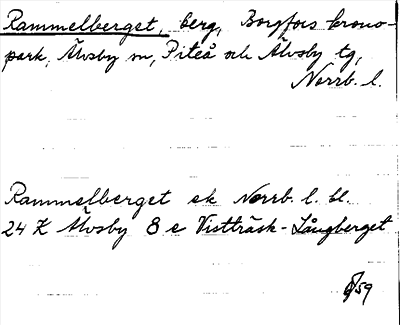 Rammelberget, berg, Borgfors krono-
park, Älvsby sn, Piteå och Älvsby tg,
Norrb. l.
Rammelberget ek Norrb. l. bl.
24 K Älvsby 8 e Vistträsk - Långberget
/59